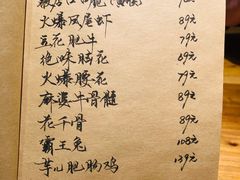 火爆凤尾虾 89元
豆花肥牛 79元
绝味脑花 69元
火爆腰花 79元
麻婆牛骨髓 89元
花千骨 89元
霸王兔 108元
芋儿肥肠鸡 139元